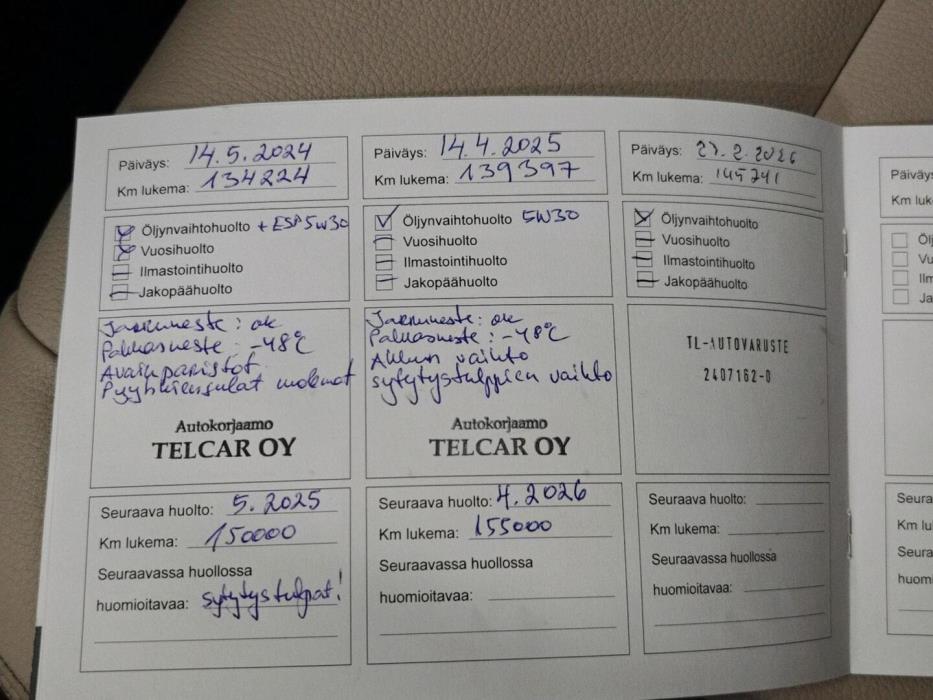 Päiväys: 14.5.2024
Km lukema: 134224
Öljynvaihtohuolto + ESP 5W30
Vuosihuolto
Ilmastointihuolto
Jakopäähuolto
Jarruneste: ok
Pakkasneste: -48°C
Avainparistot
Pyyhkiensulat molemat
Autokorjaamo
TELCAR OY
Seuraava huolto: 5.2025
Km lukema: 150000
Seuraavassa huollossa
huomioitavaa: sytytystulpat!
Päiväys: 14.4.2025
Km lukema: 139397
Öljynvaihtohuolto 5W30
Vuosihuolto
Ilmastointihuolto
Jakopäähuolto
Jarruneste: ok
Pakkasneste: -48°C
Akkun vaihto
sytytystulppien vaihto
Autokorjaamo
TELCAR OY
Seuraava huolto: 4.2026
Km lukema: 155000
Seuraavassa huollossa
huomioitavaa:
Päiväys: 27.2.2026
Km lukema: 145741
Öljynvaihtohuolto
Vuosihuolto
Ilmastointihuolto
Jakopäähuolto
TL-AUTOVARUSTE
2407162-0
Seuraava huolto:
Km lukema:
Seuraavassa huollossa
huomioitavaa:
Päiväys
Km luk
Öl
Vu
Ilm
Ja
Seura
Km lu
Seura
huom